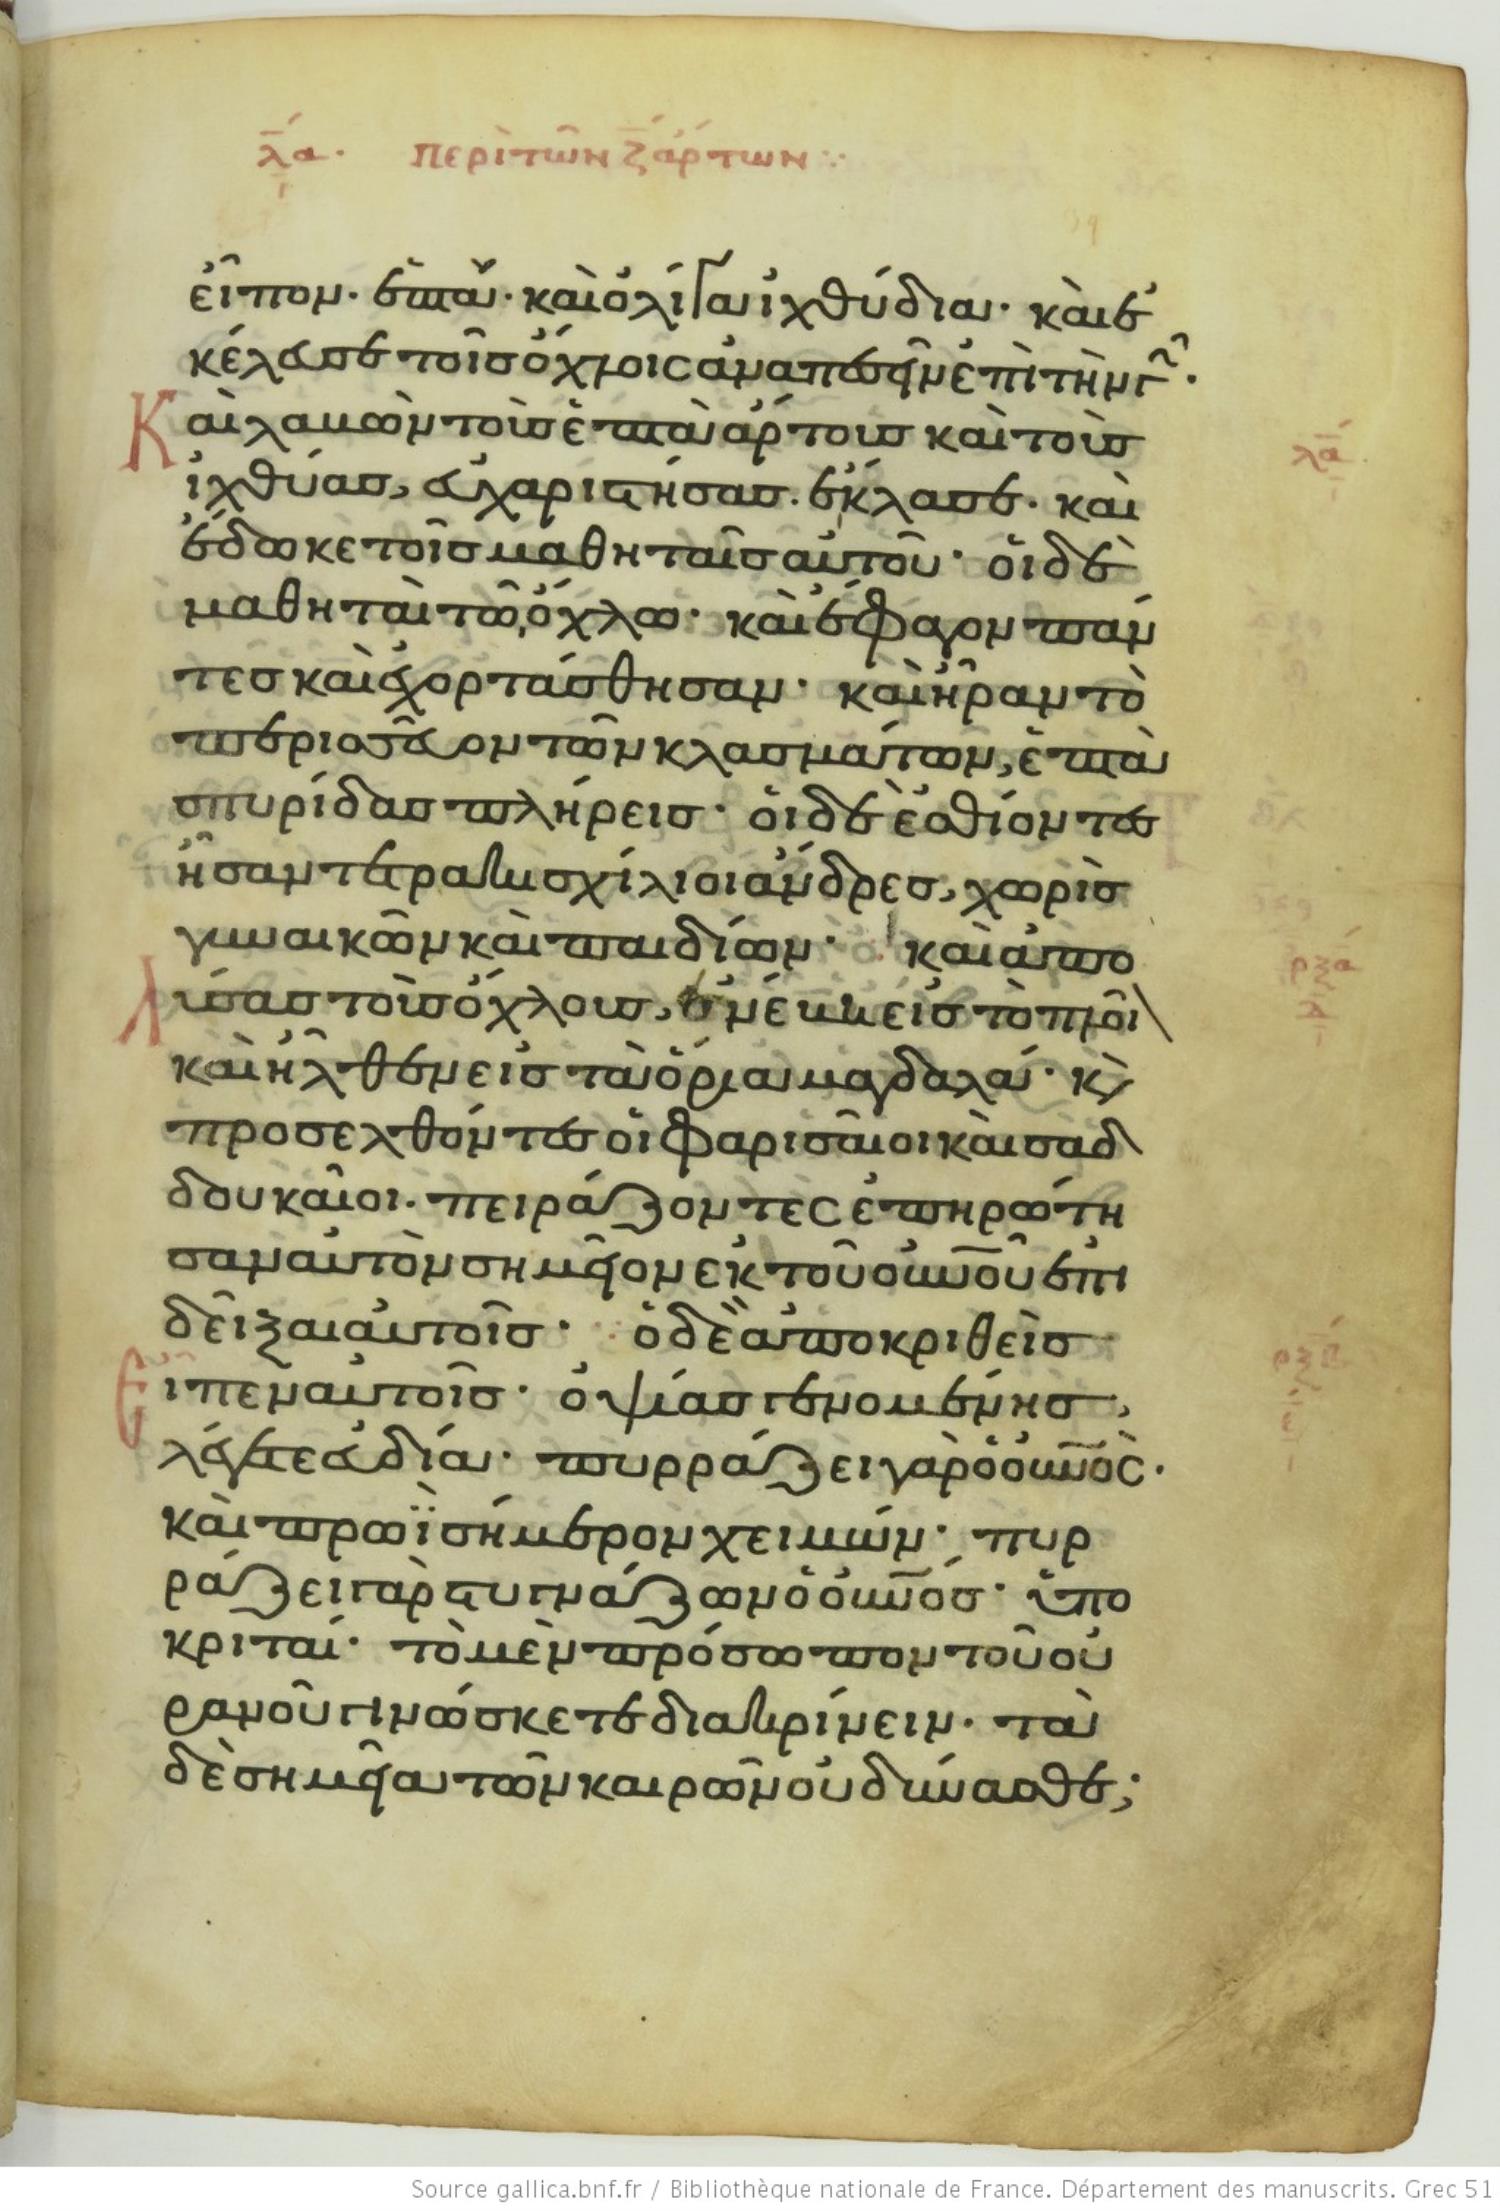 λα. περὶ τῶν ζ ἄρτων
εἶπον· ἑπτά· καὶ ὀλίγα ἰχθύδια· καὶ ἐ
κέλευσε τοῖς ὄχλοις ἀναπεσεῖν ἐπὶ τὴν γῆν·
Καὶ λαβὼν τοὺς ἑπτὰ ἄρτους καὶ τοὺς
ἰχθύας, εὐχαριστήσας. ἔκλασε· καὶ
ἔδωκε τοῖς μαθηταῖς αὐτοῦ· οἱ δὲ
μαθηταὶ τῶ, ὄχλω· καὶ ἔφαγον πάν
τες καὶ ἐχορτάσθησαν· καὶ ἦραν τὸ
περισσεῦον τῶν κλασμάτων, ἑπτὰ
σπυρίδας πλήρεις· οἱ δὲ ἐσθίοντες
ἦσαν τετρακισχίλιοι ἄνδρες, χωρὶς
γυναικῶν καὶ παιδίων· καὶ ἀπο
λύσας τοὺς ὄχλους, ἐνέβη εἰς τὸ πλοῖ
καὶ ἦλθεν εἰς τὰ ὅρια μαγδαλά· κὶ
προσελθόντες οἱ φαρισαῖοι καὶ σαδ
δουκαῖοι. πειράζοντες ἐπηρώτη
σαν αὐτὸν σημεῖον ἐκ τοῦ οὐνοῦ ἐπι
δεῖξαι αὐτοῖς· ὁ δὲ ἀποκριθεὶς
Εἶπεν αὐτοῖς· ὀψίας γενομένης,
λέγετε εὐδία· πυρράζει γὰρ ὁ οὐνὸς·
καὶ πρωῒ σήμερον χειμών· πυρ
ράζει γὰρ στυγνάζων ὁ οὐνός· ὑπο
κριταί· τὸ μὲν πρόσωπον τοῦ οὐ
ρανοῦ γινώσκετε διακρίνειν· τὰ
δὲ σημεῖα τῶν καιρῶν οὐ δύνασθε;
λα
ρξα
ρξβ
Source gallica.bnf.fr / Bibliothèque nationale de France. Département des manuscrits. Grec 51